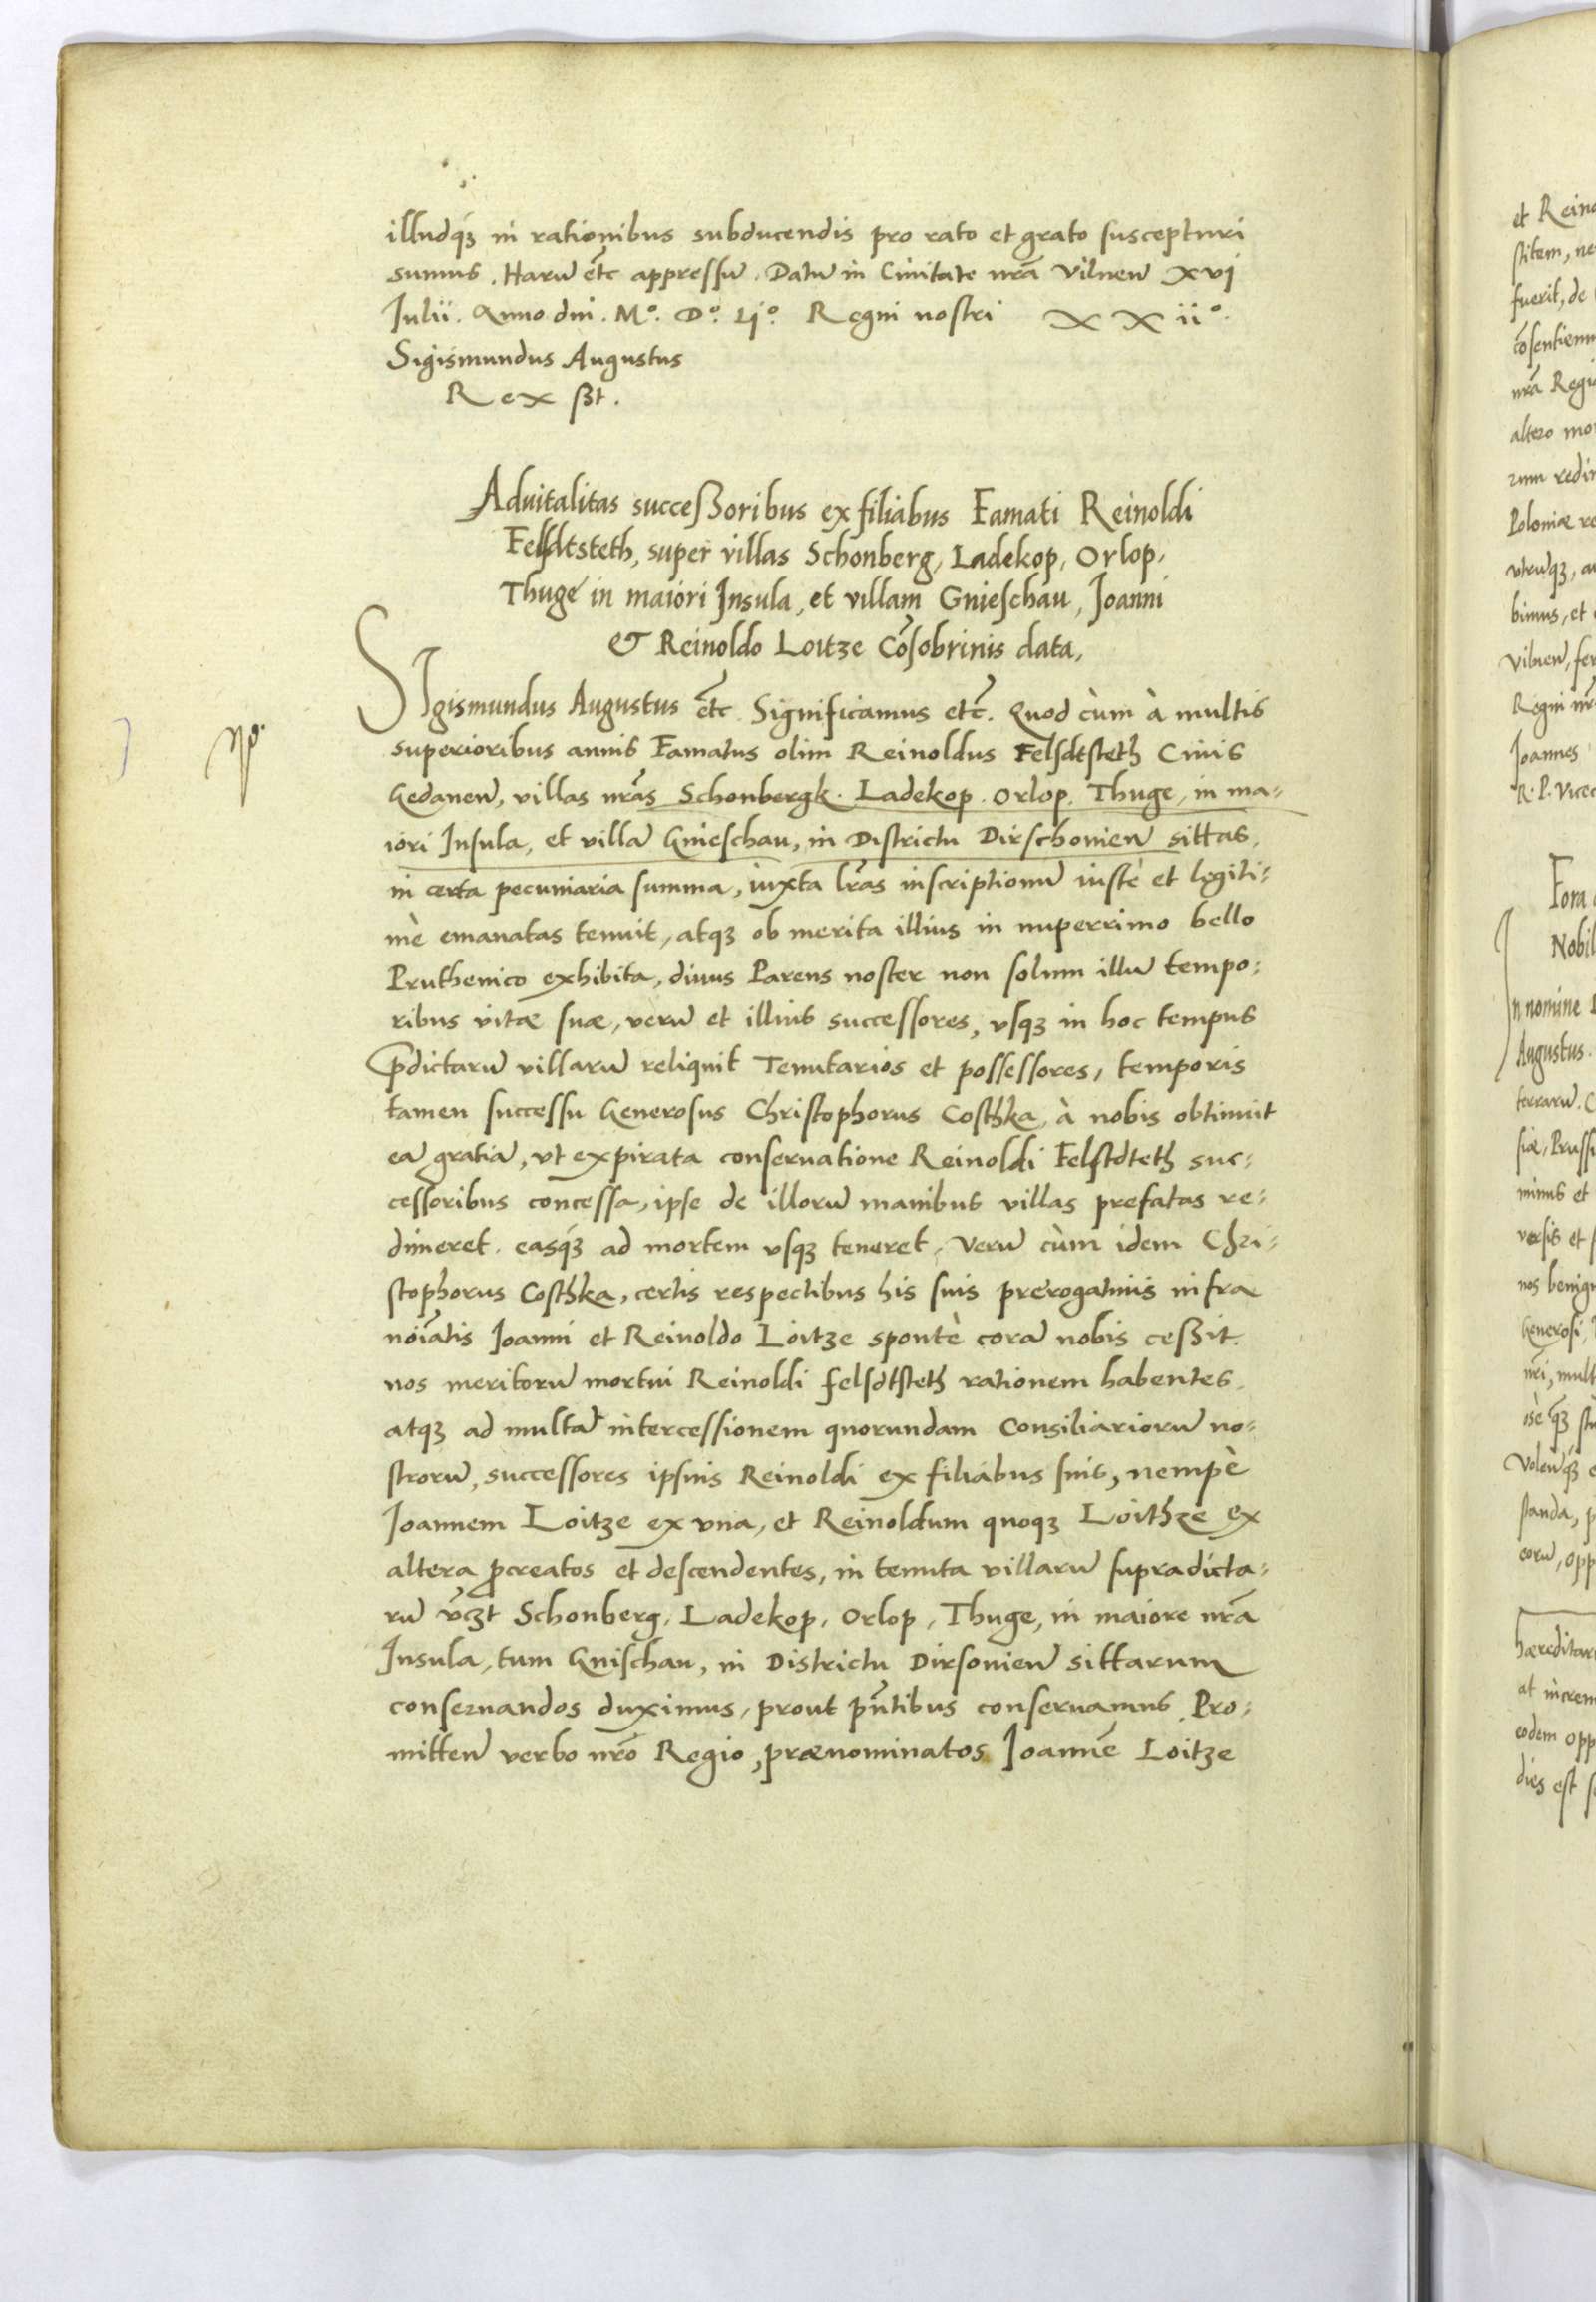 illudq́ꝫ in rationibus subducendis pro rato et grato suscepturi
sumus. Harū etc̃ appressū. Datū in Ciuitate nrã Vilneñ xvj
Julii. Anno dni. Mº. Dº. Ljº. Regni nostri XXiiº.
Sigismundus Augustus
Rex ßt.
Aduitalitas succeßoribus ex filiabus Famati Reinoldi
Felsdtsteth, super villas Schonberg, Ladekop, Orlop,
Thuge in maiori Insula, et villam Gnieschau, Joanni
& Reinoldo Loitze Cõsobrinis data,
SIgismundus Augustus etc̃. Significamus etc̃. Quod cùm à multis
superioribus annis Famatus olim Reinoldus Felsdtsteth Ciuis
Gedaneñ, villas nrãs Schonbergk. Ladekop. Orlop. Thuge, in ma-
iori Insula, et villã Gnieschau, in Districtu Dirschonieñ sittas,
in certa pecuniaria summa, iuxta lr̃as inscriptionū iustè et legiti-
mè emanatas tenuit, atqꝫ ob merita illius in nuperrimo bello
Pruthenico exhibita, diuus Parens noster non solum illū tempo-
ribus vitæ suæ, verū et illius successores, vsqꝫ in hoc tempus
p̃dictarū villarū reliquit Tenutarios et possessores, temporis
tamen successu Generosus Christophorus Costhka, à nobis obtinuit
eã gratiã, vt expirata conseruatione Reinoldi Felstdteth suc-
cessoribus concessa, ipse de illorū manibus villas prefatas re-
dimeret. easq́ꝫ ad mortem vsqꝫ teneret, Verū cùm idem Chri-
stophorus Costhka, certis respectibus his suis prerogatiuis infra
noiãtis Joanni et Reinoldo Loitze spontè corã nobis ceßit.
nos meritorū mortui Reinoldi felsdtsteth rationem habentes,
atqꝫ ad multã intercessionem quorundam Consiliariorū no-
strorū, successores ipsius Reinoldi ex filiabus suis, nempè
Joannem Loitze ex vna, et Reinoldum quoqꝫ Loithze ex
altera ꝓcreatos et descendentes, in tenuta villarū supradicta-
rū vc̃ꝫt Schonberg, Ladekop, Orlop, Thuge, in maiore nrã
Insula, tum Gnischau, in Districtu Dirsonieñ sittarum
conseruandos duximus, prout pñtibus conseruamus. Pro-
mitteñ verbo nrõ Regio, prænominatos Joannẽ Loitze
et Rein
stitem, ne
fuerit, de
cõsentienn
nrã Regi
altero mo
rum redi
Poloniæ re
vtrūqꝫ, au
bimus, et
Vilneñ, fer
Regni nrĩ
Joannes
R. P. Vicec
Fora
Nobil
In nomine
Augustus.
terrarū. C
siæ, Prussi
minus et
versis et
nos benig
Generosi
nrĩ, mult
Volenq́ꝫ
standa, p
eorū, opp
hæreditar
at increm
eodem opp
dies est s